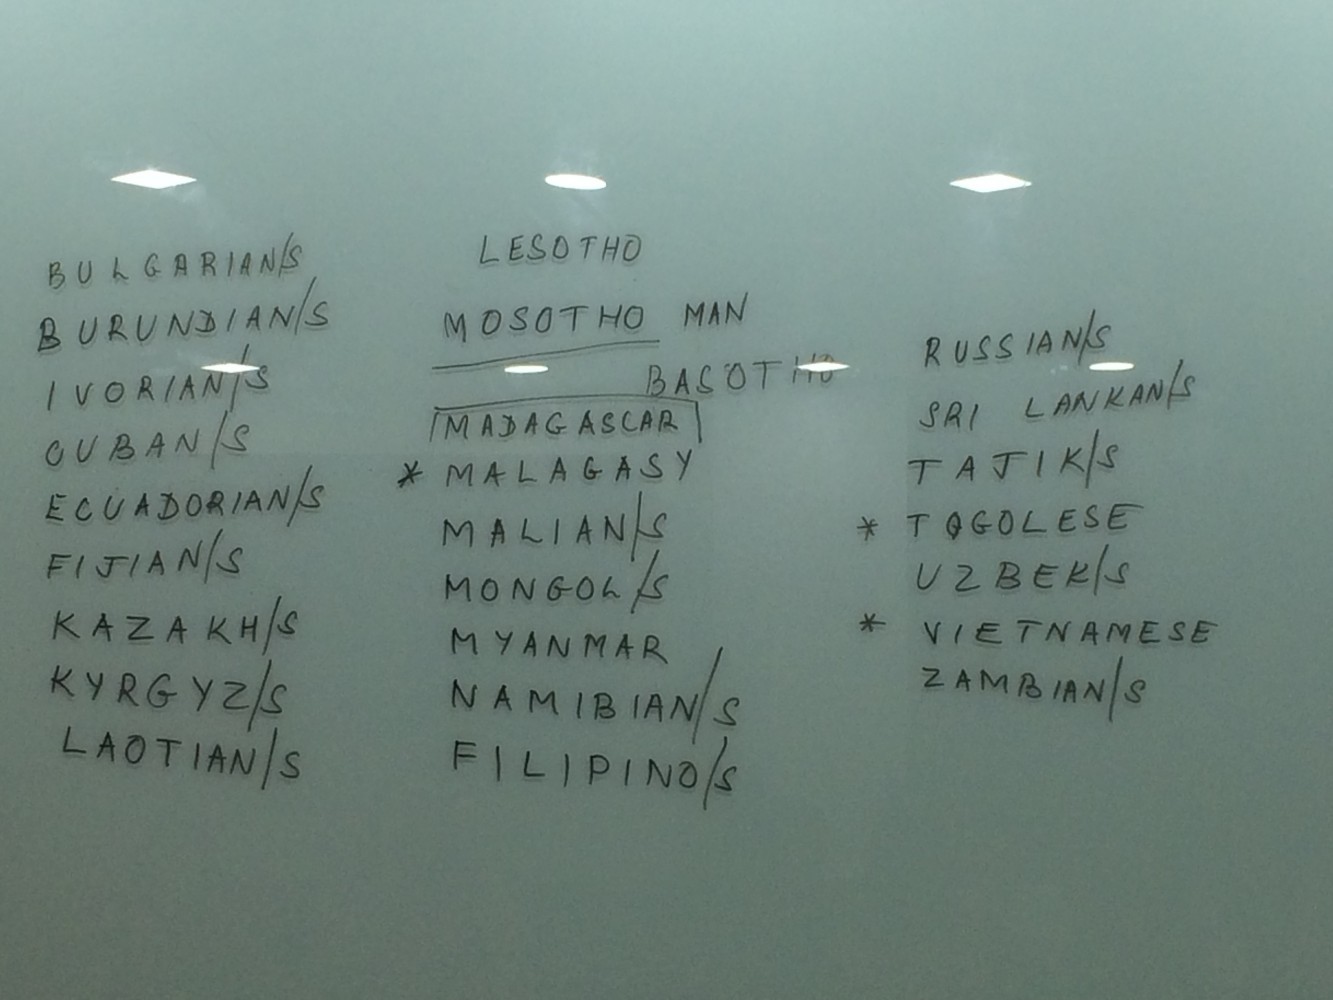 BULGARIAN/S
BURUNDIAN/S
IVORIAN/S
CUBAN/S
ECUADORIAN/S
FIJIAN/S
KAZAKH/S
KYRGYZ/S
LAOTIAN/S
LESOTHO
MOSOTHO MAN
BASOTHO
MADAGASCAR
* MALAGASY
MALIAN/S
MONGOL/S
MYANMAR
NAMIBIAN/S
FILIPINO/S
RUSSIAN/S
SRI LANKAN/S
TAJIK/S
* TOGOLESE
UZBEK/S
* VIETNAMESE
ZAMBIAN/S